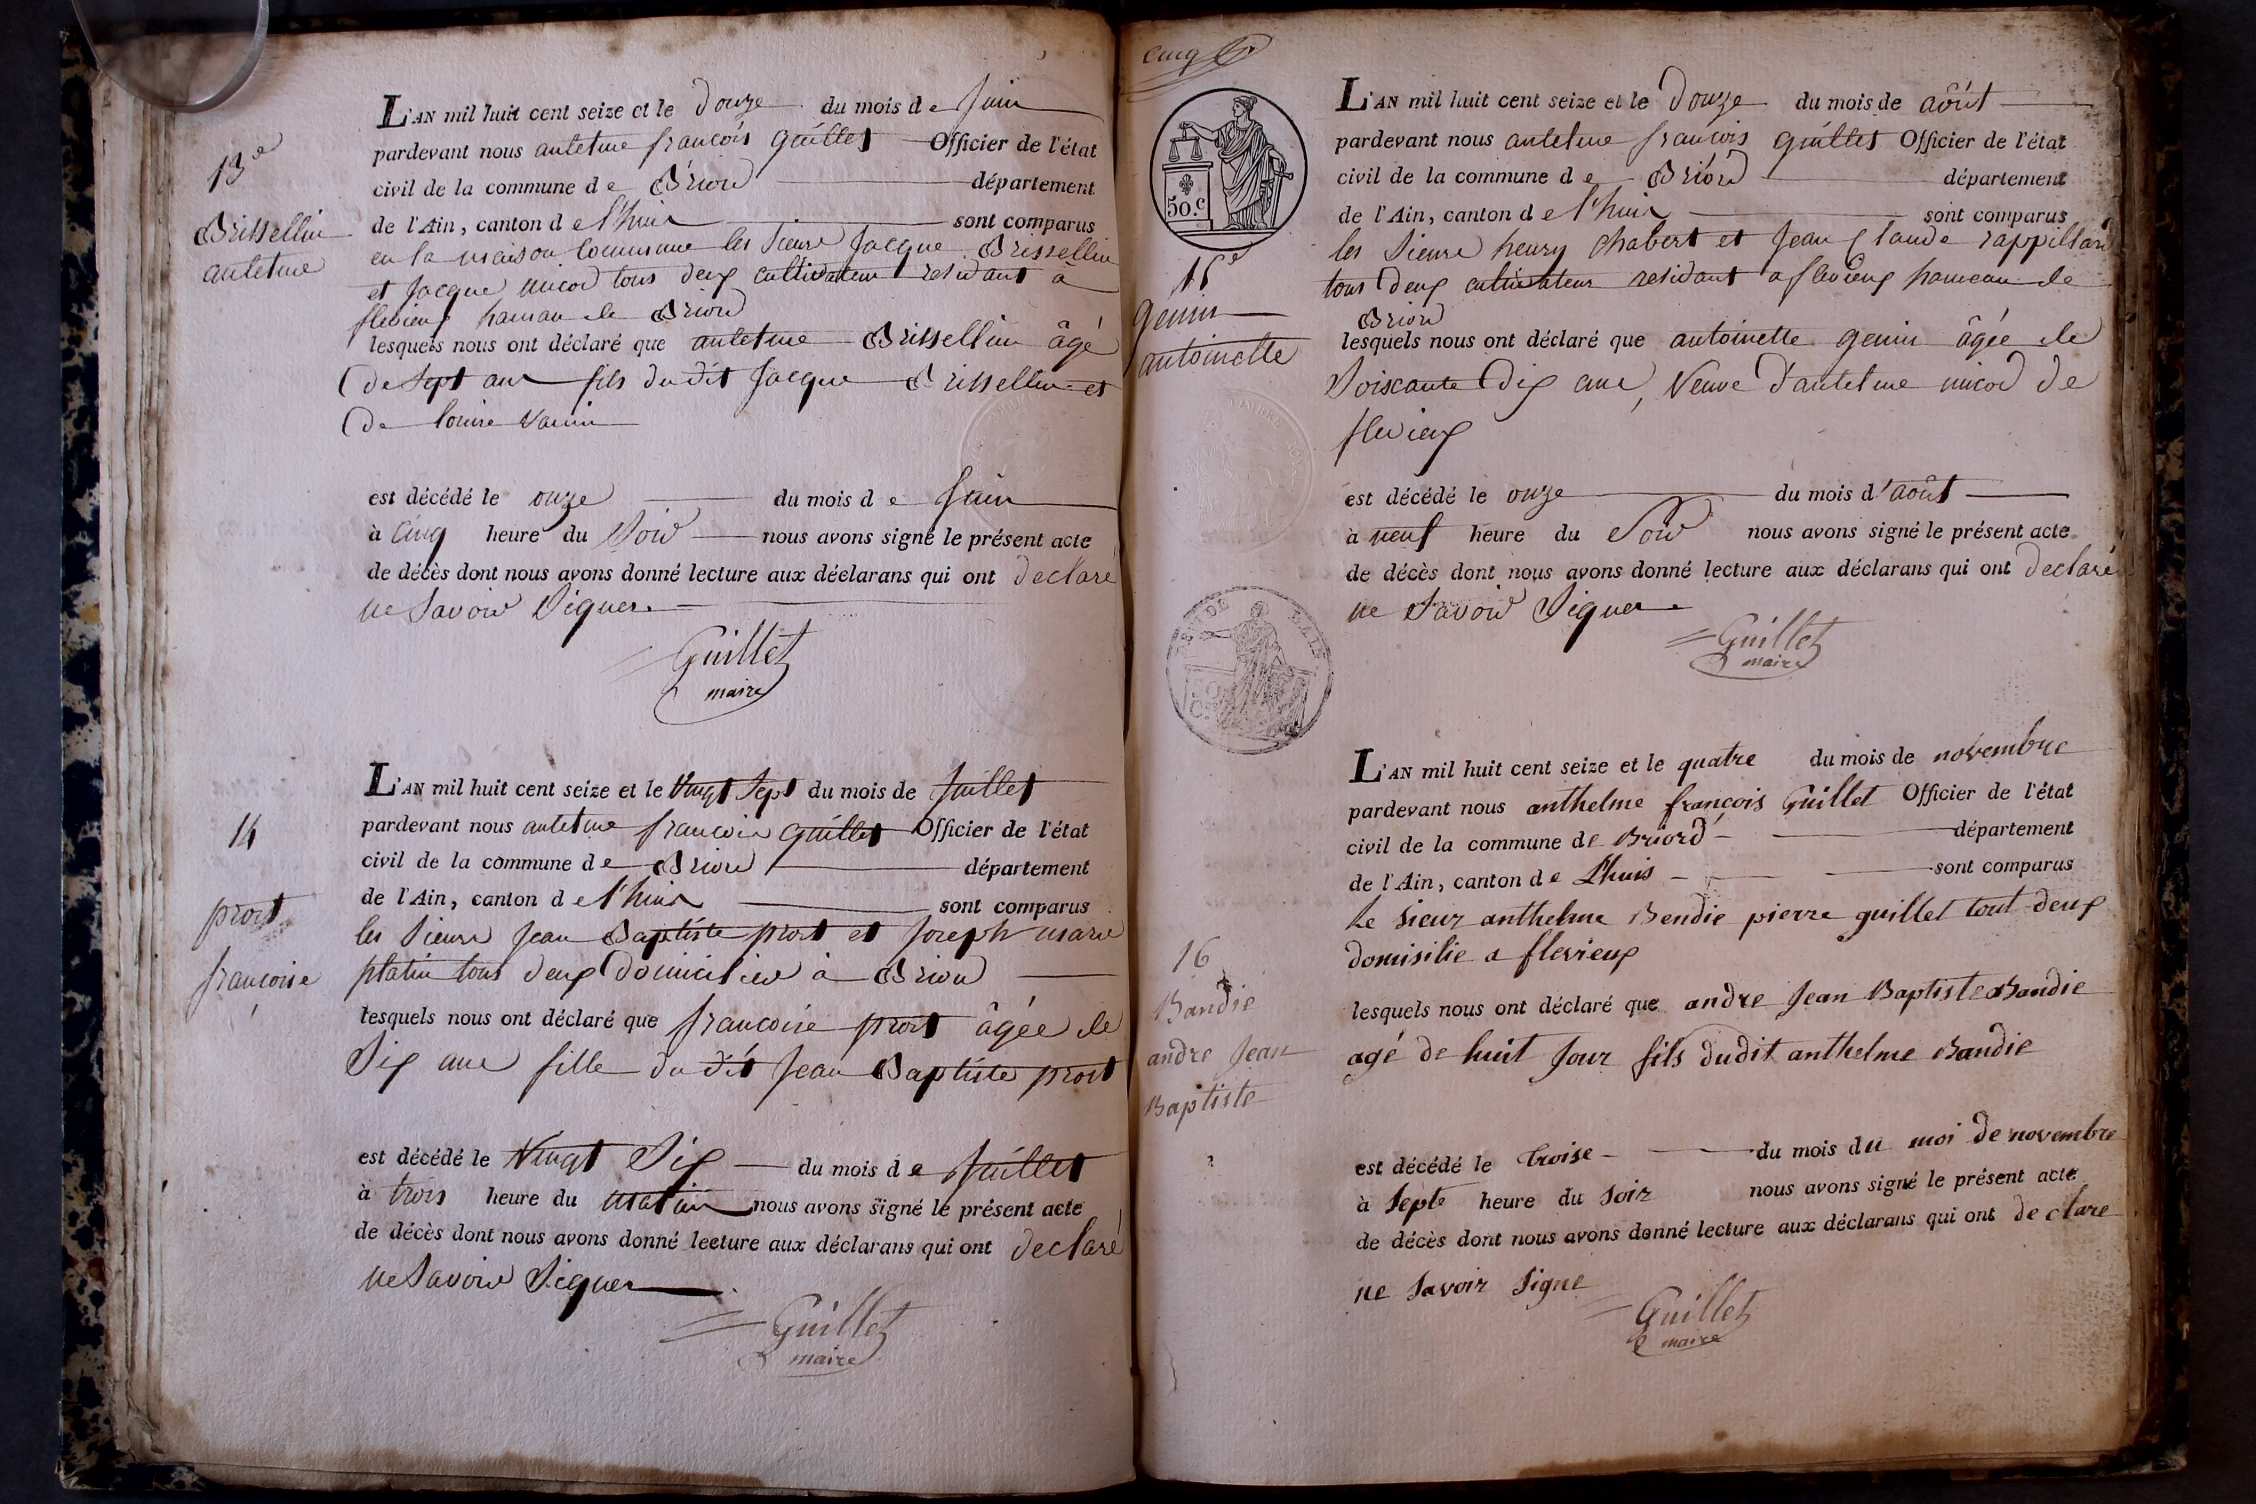 13e
Brissellin
antelme
L'AN mil huit cent seize et le douze du mois de Juin
pardevant nous antelme francois guillet Officier de l'état
civil de la commune de Briord département
de l'Ain, canton de l'huis sont comparus
en la maison Commune les Sieurs Jacque Brissellin
et Jacque micod tous deux cultivateur residant à
flevieux hamau de Briord
lesquels nous ont déclaré que antelme Brissellin âgé
de Sept ans fils du dit Jacque Brissellin et
de louise
est décédé le onze du mois de Juin
à Cinq heure du Soir nous avons signé le présent acte
de décès dont nous avons donné lecture aux déclarans qui ont declaré
ne Savoir Signer.
Guillet
maire
14
prost
francoise
L'AN mil huit cent seize et le Vingt Sept du mois de Juillet
pardevant nous antelme francois guillet Officier de l'état
civil de la commune de Briord département
de l'Ain, canton de l'huis sont comparus
les Sieurs Jean Baptiste prost et Joseph marie
platin tous deux domiciliés à Briord
lesquels nous ont déclaré que francoise prost âgée de
Six ans fille du dit Jean Baptiste prost
est décédé le Vingt Six du mois de Juillet
à trois heure du matin nous avons signé le présent acte
de décès dont nous avons donné lecture aux déclarans qui ont declaré
ne Savoir Signer
Guillet
maire
Cinq
50.c
15e
genin
antoinette
L'AN mil huit cent seize et le Douze du mois de août
pardevant nous antelme francois guillet Officier de l'état
civil de la commune de Briord département
de l'Ain, canton de l'huis sont comparus
les Sieurs henry chabert et Jean Claude rappillard
tous deux cultivateurs residant a flevieux hameau de
Briord
lesquels nous ont déclaré que antoinette genin âgée de
Soiscante dix ans, Veuve d'antelme micod de
flevieux
est décédé le onze du mois d'août
à neuf heure du Soir nous avons signé le présent acte
de décès dont nous avons donné lecture aux déclarans qui ont declaré
ne Savoir Signer
Guillet
maire
16
Bandie
andre Jean
Baptiste
L'AN mil huit cent seize et le quatre du mois de novembre
pardevant nous anthelme françois Guillet Officier de l'état
civil de la commune de Briord département
de l'Ain, canton de Lhuis sont comparus
le Sieur anthelme Bendie pierre guillet tout deux
domisilie a flevieux
lesquels nous ont déclaré que andre Jean Baptiste Bandie
agé de huit Jour fils dudit anthelme Bandie
est décédé le troise du mois du moi de novembre
à Septe heure du Soir nous avons signé le présent acte
de décès dont nous avons donné lecture aux déclarans qui ont declare
ne Savoir Signe
Guillet
maire